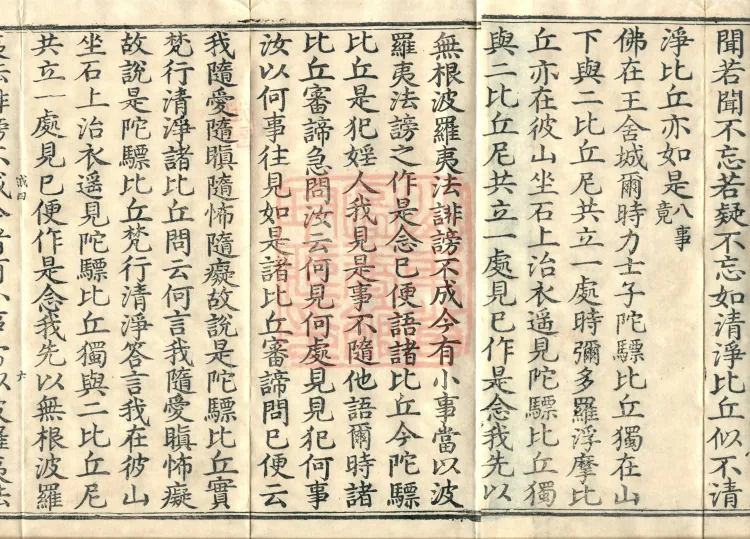 聞若聞不忘若疑不忘如清淨比丘似不清
淨比丘亦如是八事竟
佛在王舍城爾時力士子陀驃比丘獨在山
下與二比丘尼共立一處時彌多羅浮摩比
丘亦在彼山坐石上治衣遥見陀驃比丘獨
與二比丘尼共立一處見巳作是念我先以
無根波羅夷法誹謗不成今有小事當以波
羅夷法謗之作是念巳便語諸比丘今陀驃
比丘是犯婬人我見是事不隨他語爾時諸
比丘審諦急問汝云何見何處見見犯何事
汝以何事往見如是諸比丘審諦問巳便云
我隨愛隨瞋隨怖隨癡故說是陀驃比丘實
梵行清淨諸比丘問云何言我隨愛瞋怖癡
故說是陀驃比丘梵行清淨答言我在彼山
坐石上治衣遥見陀驃比丘獨與二比丘尼
共立一處見巳便作是念我先以無根波羅
六